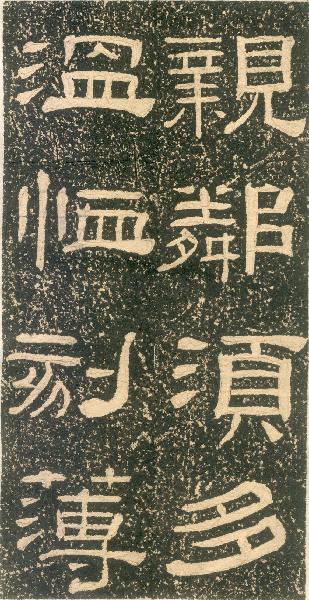 親鄰須多
溫恤刻薄